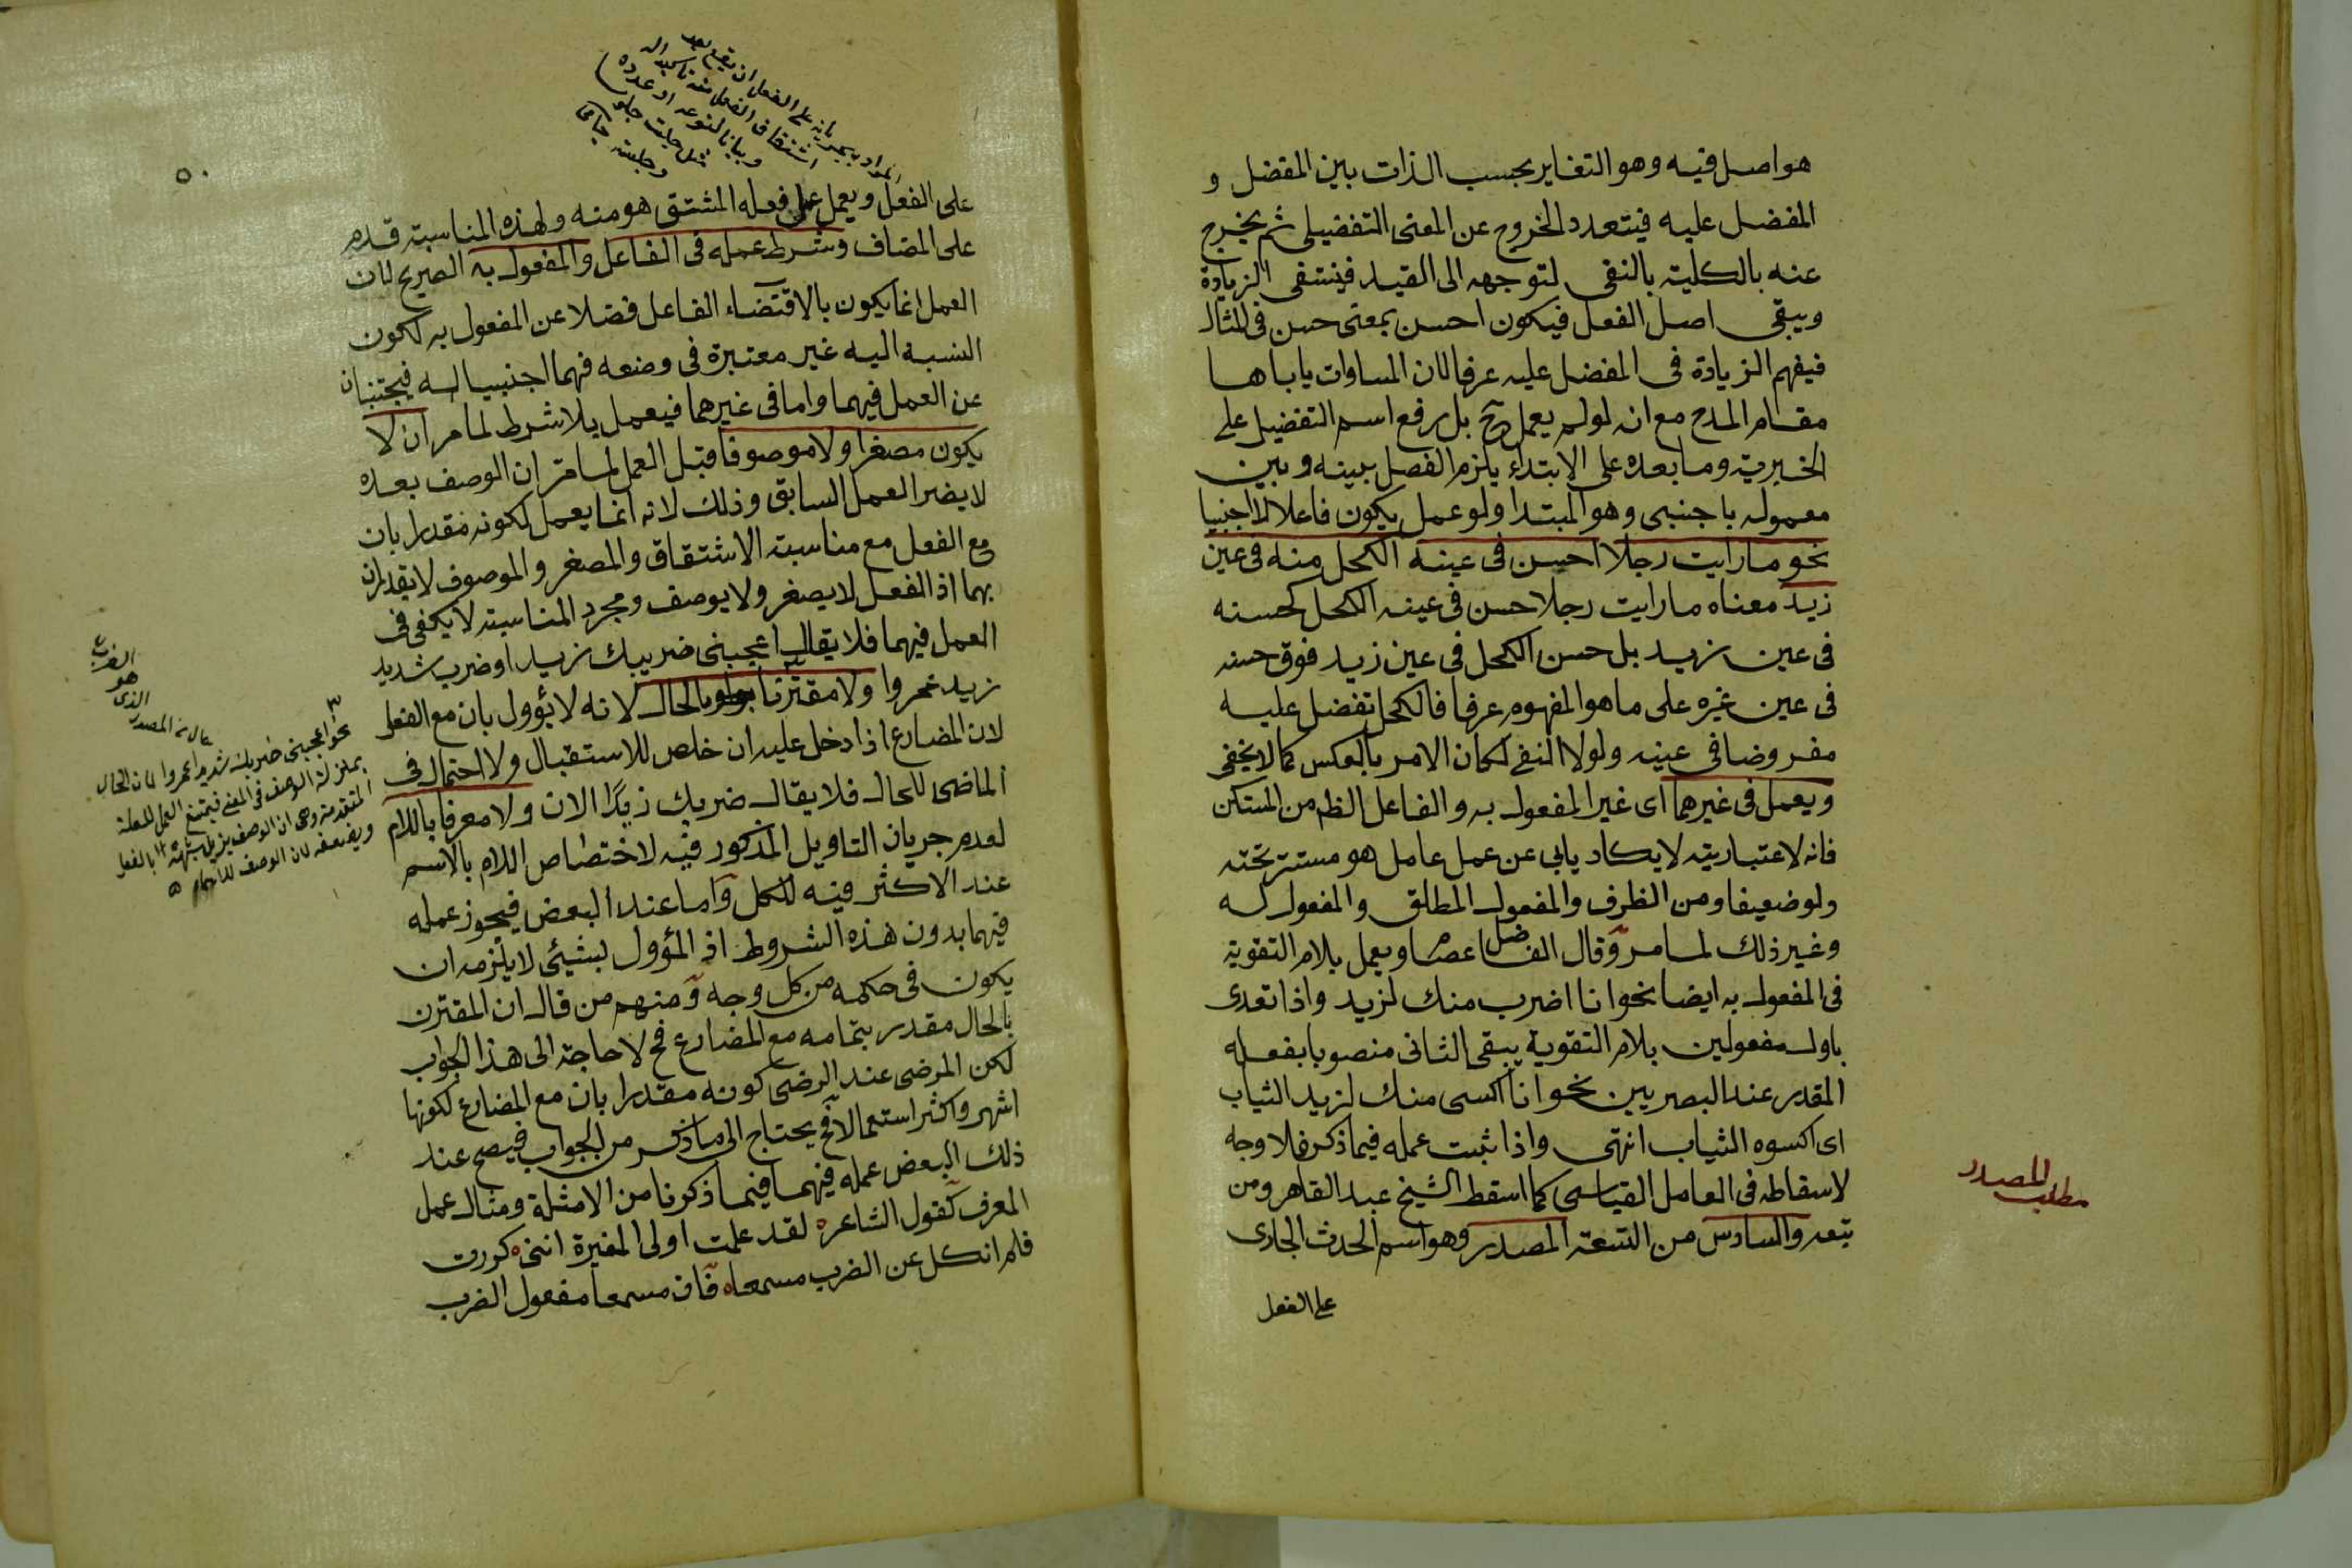 هو اصل فيه وهو التغاير بحسب الذات بين المفضل و
المفضل عليه فيتعدد الخروج عن المعنى التفضيلى ثم يخرج
عنه بالكلية بالنفى لتوجهه الى القيد فينتفى الزيادة
ويبقى اصل الفعل فيكون احسن بمعنى حسن فى المثال
فيفهم الزيادة فى المفضل عليه عرفا لان المساوات ياباها
مقام المدح مع انه لو لم يعمل ح بل يرفع اسم التفضيل على
الخبرية وما بعده على الابتداء يلزم الفصل بينه وبين
معموله باجنبى وهو المبتدا ولو عمل يكون فاعلا لا اجنبيا
نحو ما رايت رجلا احسن فى عينه الكحل منه فى عين
زيد معناه ما رايت رجلا حسن فى عينه الكحل كحسنه
فى عين زيد بل حسن الكحل فى عين زيد فوق حسنه
فى عين غيره على ما هو المفهوم عرفا فالكحل تفضل عليه
مفروضا فى عينه ولولا النفى لكان الامر بالعكس كما لا يخفى
ويعمل فى غيرهما اى غير المفعول به والفاعل الظ من المستكن
فانه لاعتباريته لا يكاد يابى عن عمل عامل هو مستتر تحته
ولو ضعيفا ومن الظرف والمفعول المطلق والمفعول له
وغير ذلك لما مر وقال الفاضل عصام ويعمل بلام التقوية
فى المفعول به ايضا نحو انا اضرب منك لزيد واذا تعدى
باول مفعولين بلام التقوية يبقى الثانى منصوبا بفعله
المقدر عند البصريين نحو انا اكسى منك لزيد الثياب
اى اكسوه الثياب انتهى واذا ثبت عمله فيما ذكر فلا وجه
لاسقاطه فى العامل القياسى كما اسقط الشيخ عبد القاهر ومن
تبعه والسادس من التسعة المصدر وهو اسم الحدث الجارى
على الفعل
مطلب المصدر
٥٠
على الفعل ويعمل عمل فعله المشتق هو منه ولهذه المناسبة قدم
على المضاف وشرط عمله فى الفاعل والمفعول به الصريح لان
العمل انما يكون بالاقتضاء الفاعل فضلا عن المفعول به لكون
النسبة اليه غير معتبرة فى وضعه فهما اجنبيا له فيجتنبان
عن العمل فيهما واما فى غيرهما فيعمل بلا شرط لما مر ان لا
يكون مصغرا ولا موصوفا قبل العمل لما مر ان الوصف بعده
لا يضر العمل السابق وذلك لانه انما يعمل لكونه مقدرا بان
مع الفعل مع مناسبة الاشتقاق والمصغر والموصوف لا يقدران
بهما اذ الفعل لا يصغر ولا يوصف ومجرد المناسبة لا يكفى فى
العمل فيهما فلا يقال اعجبنى ضريبك زيدا وضرب شديد
زيد عمروا ولا مقترنا بالحال لانه لا يؤول بان مع الفعل
لان المضارع اذا دخل عليه ان خلص للاستقبال ولا احتمال فى
الماضى للحال فلا يقال ضربك زيدا الان ولا معرفا باللام
لعدم جريان التاويل المذكور فيه لاختصاص اللام بالاسم
عند الاكثر فيه للكل واما عند البعض فيجوز عمله
فيهما بدون هذه الشروط اذ المؤول بشيئ لا يلزمه ان
يكون فى حكمه من كل وجه ومنهم من قال ان المقترن
بالحال مقدر بتمامه مع المضارع فح لا حاجة الى هذا الجواب
لكن المرضى عند الرضى كونه مقدرا بان مع المضارع لكونها
اشهر واكثر استعمالا فح يحتاج الى ما ذكر من الجواب فيصح عند
ذلك البعض عمله فيهما فيما ذكرنا من الامثلة ومثال عمل
المعرف كقول الشاعر لقد علمت اولى المغيرة اننى كررت
فلم انكل عن الضرب مسمعا فان مسمعا مفعول الضرب
المراد بجريانه على الفعل ان يقع بعد
اشتقاق الفعل منه تاكيدا له
وبيانا لنوعه او عدده
مثل جلست جلوسا
نحو اعجبنى ضربك شديدا عمروا لان الحال
بمنزلة الوصف فى المعنى فيمتنع العمل للعلة
المتقدمة وهى ان الوصف يزيل شبهه بالفعل